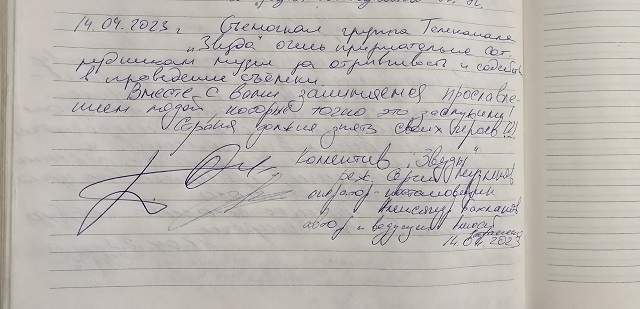 14.04.2023г. Съемочная группа Телеканала
"Звезда" очень признательна сот-
рудникам музея за отзывчивость и содейств.
в проведение съемки.
Вместе с Вами занимаемся прославле-
нием людей которые точно это заслужили!
Страна должна знать своих героев!!!
Коллектив "Звезды"
реж. Сергей
оператор-постановщик
Александр
автор и ведущий
14.04.2023